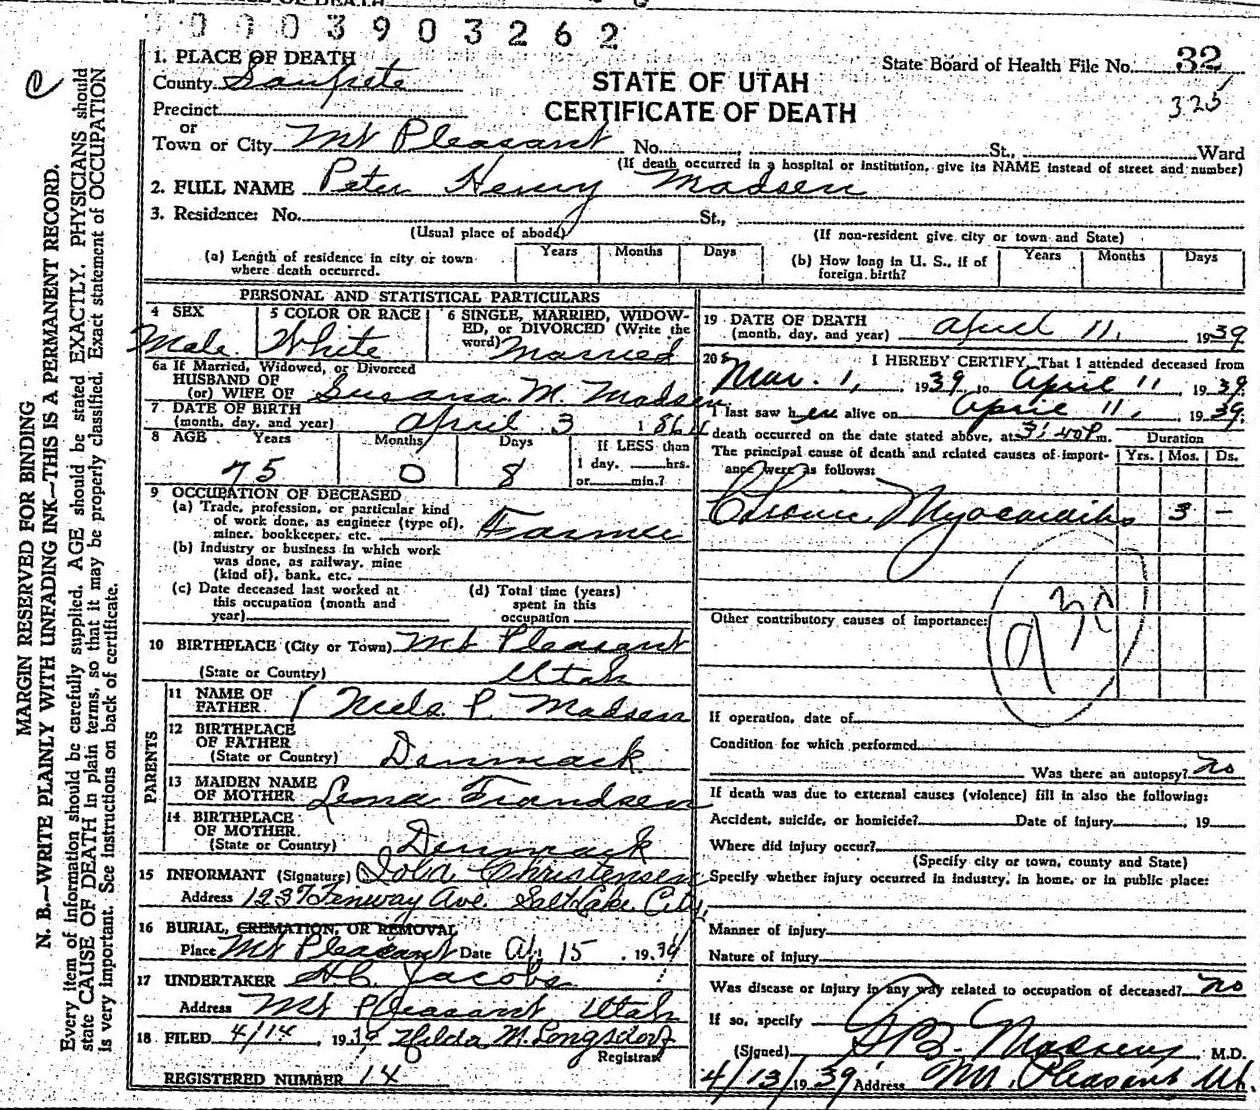 0003903262
1. PLACE OF DEATH
County Sanpete
STATE OF UTAH
CERTIFICATE OF DEATH
State Board of Health File No. 32
325
Precinct
or
Town or City Mt Pleasant No. St., Ward
(If death occurred in a hospital or institution, give its NAME instead of street and number)
2. FULL NAME Peter Henry Madsen
3. Residence: No. St.,
(Usual place of abode) (If non-resident give city or town and State)
(a) Length of residence in city or town where death occurred. Years Months Days
(b) How long in U. S., if of foreign birth? Years Months Days
PERSONAL AND STATISTICAL PARTICULARS
4 SEX Male
5 COLOR OR RACE White
6 SINGLE, MARRIED, WIDOW-
ED, or DIVORCED (Write the
word) Married
6a If Married, Widowed, or Divorced
HUSBAND OF
(or) WIFE OF Susana M. Madsen
7 DATE OF BIRTH
(month, day, and year) April 3 1864
8 AGE Years Months Days If LESS than
75 0 8 1 day. hrs.
or min.?
9 OCCUPATION OF DECEASED
(a) Trade, profession, or particular kind
of work done, as engineer (type of),
miner, bookkeeper, etc. Farmer
(b) Industry or business in which work
was done, as railway, mine
(kind of), bank, etc.
(c) Date deceased last worked at
this occupation (month and
year)
(d) Total time (years)
spent in this
occupation
10 BIRTHPLACE (City or Town) Mt Pleasant
(State or Country) Utah
PARENTS
11 NAME OF
FATHER Niels P. Madsen
12 BIRTHPLACE
OF FATHER
(State or Country) Denmark
13 MAIDEN NAME
OF MOTHER Lena Frandsen
14 BIRTHPLACE
OF MOTHER
(State or Country) Denmark
15 INFORMANT (Signature) Iola Christensen
Address 1237 Fenway Ave. Salt Lake City,
16 BURIAL, CREMATION, OR REMOVAL
Place Mt Pleasant Date Ap. 15, 1939
17 UNDERTAKER Jacobs
Address Mt Pleasant Utah
18 FILED 4/14, 1939 Hilda M. Longsdorf
Registrar
REGISTERED NUMBER 14
19 DATE OF DEATH
(month, day, and year) April 11, 1939
20 I HEREBY CERTIFY, That I attended deceased from
Mar. 1, 1939, to April 11, 1939.
I last saw him alive on April 11, 1939.
death occurred on the date stated above, at 3:40 P.m.
The principal cause of death and related causes of import-
ance were as follows:
Duration
Yrs. Mos. Ds.
Chronic Myocarditis 3 -
Other contributory causes of importance:
93c
If operation, date of
Condition for which performed
Was there an autopsy? no
If death was due to external causes (violence) fill in also the following:
Accident, suicide, or homicide? Date of injury , 19
Where did injury occur?
(Specify city or town, county and State)
Specify whether injury occurred in industry, in home, or in public place:
Manner of injury
Nature of injury
Was disease or injury in any way related to occupation of deceased? no
If so, specify
(Signed) Madsen, M.D.
4/13/1939 Address Mt. Pleasant Ut.
MARGIN RESERVED FOR BINDING
N. B.—WRITE PLAINLY WITH UNFADING INK—THIS IS A PERMANENT RECORD.
Every item of information should be carefully supplied. AGE should be stated EXACTLY. PHYSICIANS should
state CAUSE OF DEATH in plain terms, so that it may be properly classified. Exact statement of OCCUPATION
is very important. See instructions on back of certificate.